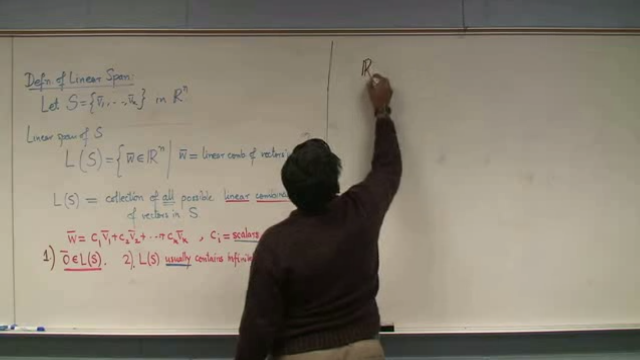 Defn. of Linear Span:
Let S = {v̄₁, . . , v̄ₖ} in ℝⁿ
Linear span of S
L(S) = { w̄ ∈ ℝⁿ | w̄ = linear comb of vectors in
L(S) = collection of all possible linear combina
of vectors in S
w̄ = c₁v̄₁ + c₂v̄₂ + ··· + cₖv̄ₖ , cᵢ = scalars
1) 0̄ ∈ L(S). 2). L(S) usually contains infinite
ℝ